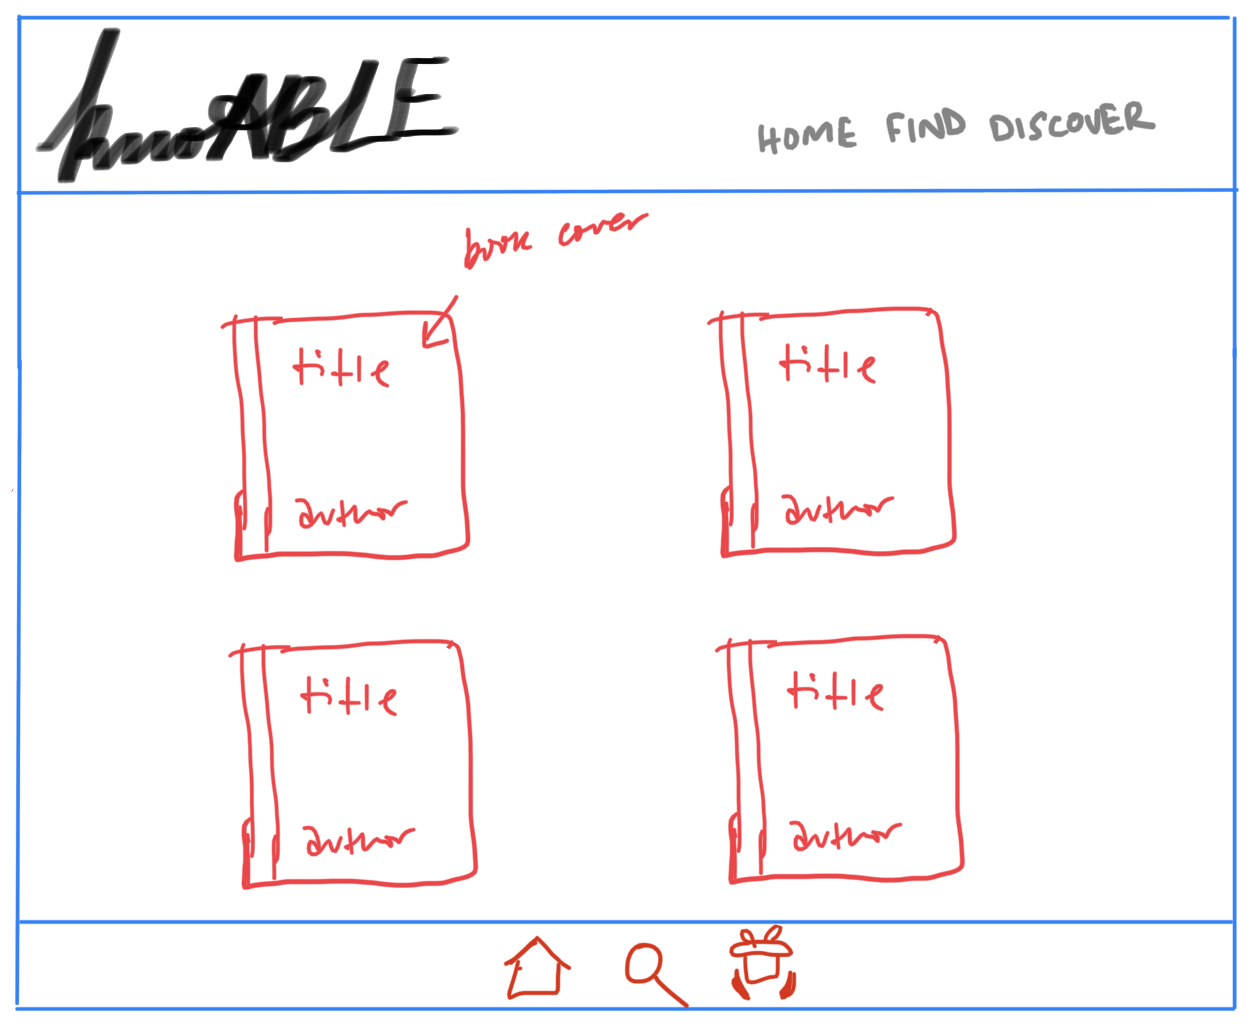 HOME FIND DISCOVER
book cover
title
author
title
author
title
author
title
author